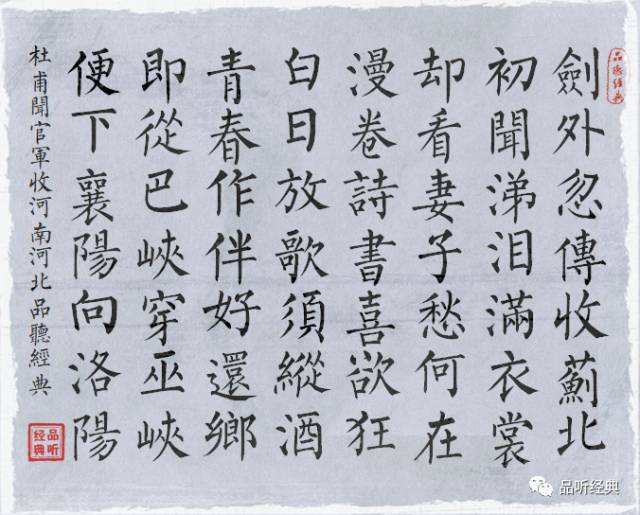 劍外忽傳收薊北
初聞涕泪滿衣裳
却看妻子愁何在
漫卷詩書喜欲狂
白日放歌須縱酒
青春作伴好還鄉
即從巴峽穿巫峽
便下襄陽向洛陽
杜甫聞官軍收河南河北品聽經典
品听经典
品听经典
品听经典